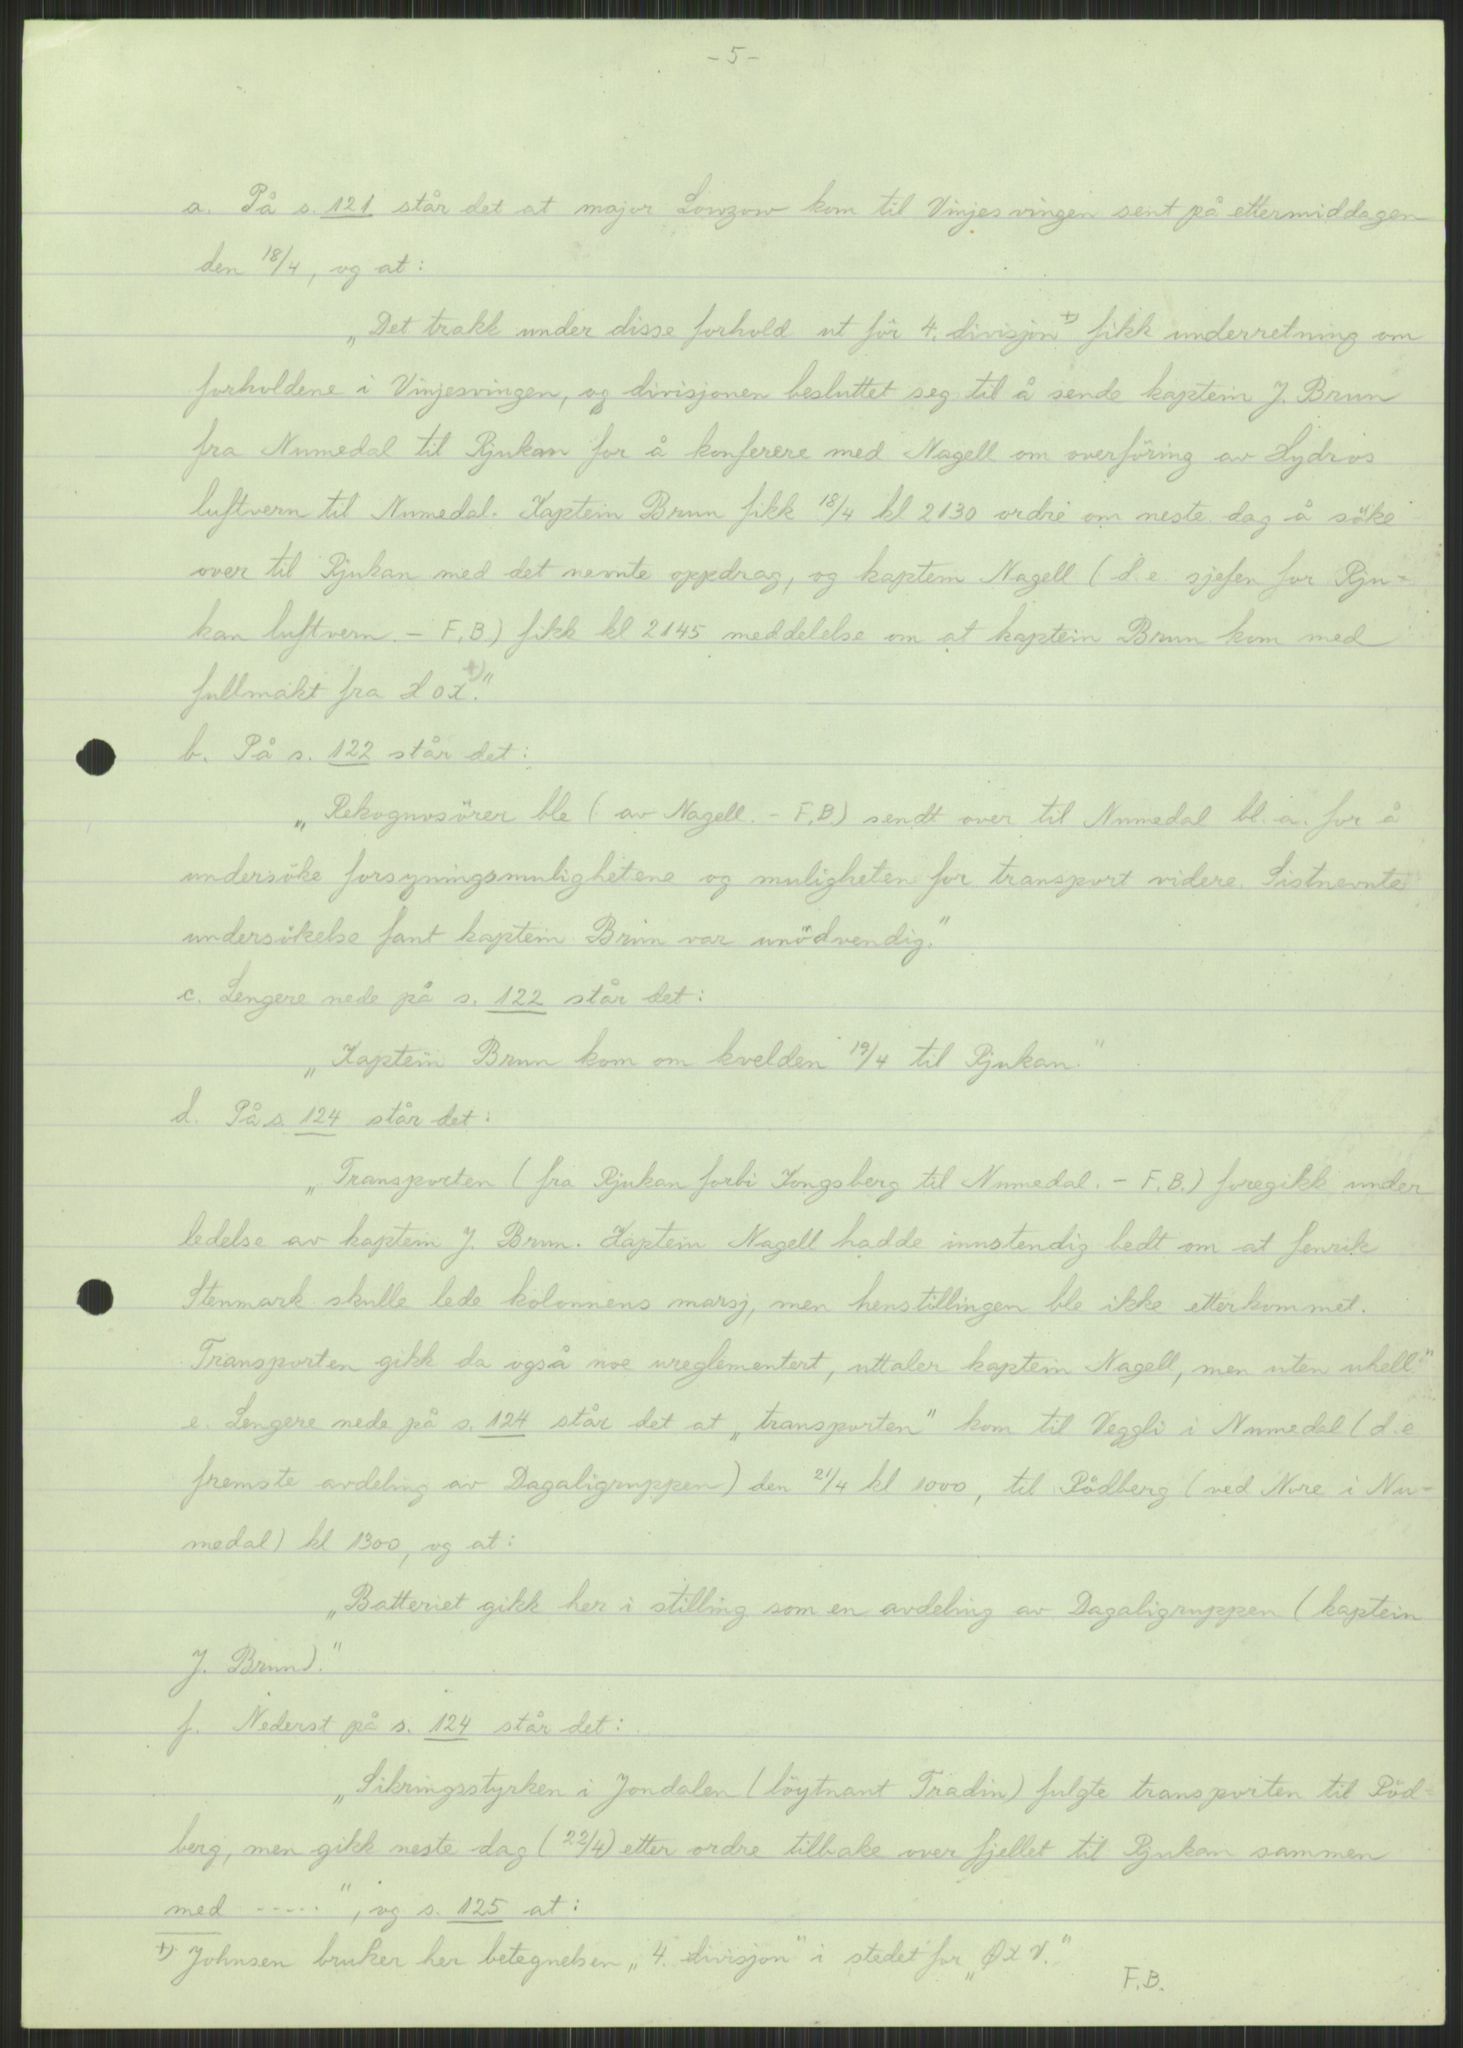 - 5 -
a. På s. 121 står det at major Lowzow kom til Vinjesvingen sent på ettermiddagen
den 18/4, og at:
„Det trakk under disse forhold ut för 4. divisjon +) fikk underretning om
forholdene i Vinjesvingen, og divisjonen besluttet seg til å sende kaptein J. Brun
fra Numedal til Rjukan for å konferere med Nagell om overföring av Hydros
luftvern til Numedal. Kaptein Brun fikk 18/4 kl 2130 ordre om neste dag å söke
over til Rjukan med det nevnte oppdrag, og kaptein Nagell (d.e. sjefen for Rju-
kan luftvern. - F.B.) fikk kl 2145 meddelelse om at kaptein Brun kom med
fullmakt fra HOK +)."
b. På s. 122 står det:
„Rekognosörer ble (av Nagell. - F.B) sendt over til Numedal bl. a. for å
undersöke forsyningsmulighetene og muligheten for transport videre. Sistnevnte
undersökelse fant kaptein Brun var unödvendig."
c. Lengere nede på s. 122 står det:
„Kaptein Brun kom om kvelden 19/4 til Rjukan."
d. På s. 124 står det:
„Transporten (fra Rjukan forbi Kongsberg til Numedal. - F.B.) foregikk under
ledelse av kaptein J. Brun. Kaptein Nagell hadde innstendig bedt om at fenrik
Stenmark skulle lede kolonnens marsj, men henstillingen ble ikke etterkommet.
Transporten gikk da også noe ureglementert, uttaler kaptein Nagell, men uten uhell."
e. Lengere nede på s. 124 står det at „transporten" kom til Veggli i Numedal (d.e
fremste avdeling av Dagaligruppen) den 21/4 kl 1000, til Rödberg (ved Nore i Nu-
medal) kl 1300, og at:
„Batteriet gikk her i stilling som en avdeling av Dagaligruppen (kaptein
J. Brun)."
f. Nederst på s. 124 står det:
„Sikringsstyrken i Jondalen (löytnant Tradin) fulgte transporten til Röd-
berg, men gikk neste dag (22/4) etter ordre tilbake over fjellet til Rjukan sammen
med -----", og s. 125 at:
+) Johnsen bruker her betegnelsen „4. divisjon" i stedet for „ØKV."
F.B.